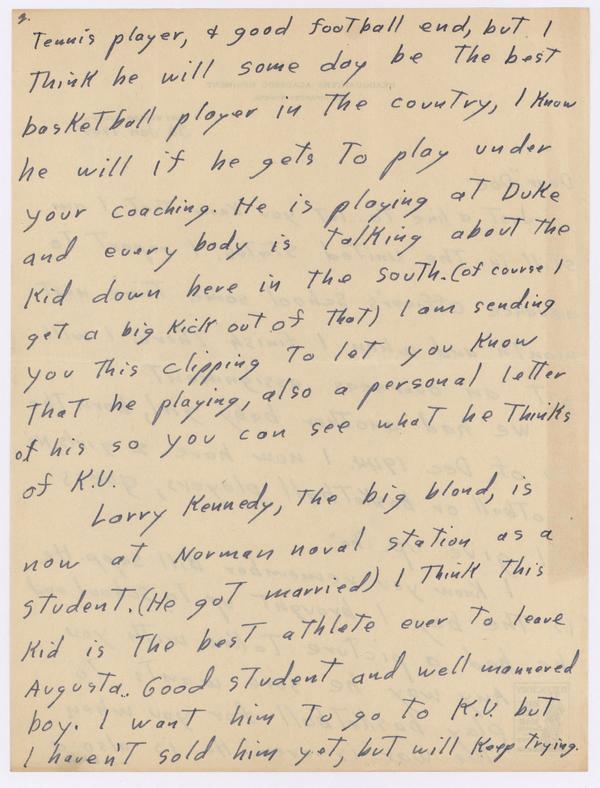 3.
Tennis player, & good football end, but I
Think he will some day be The best
basketball player in The country, I Know
he will if he gets To play under
your coaching. He is playing at Duke
and every body is Talking about The
Kid down here in The south. (of course I
get a big Kick out of That) I am sending
you This clipping To let you Know
That he playing, also a personal letter
of his so you can see what he Thinks
of K.U.
Larry Kennedy, The big blond, is
now at Norman naval station as a
student. (He got married) I Think This
Kid is The best athlete ever To leave
Augusta. Good student and well mannered
boy. I want him To go To K.U. but
I haven't sold him yet, but will Keep Trying.